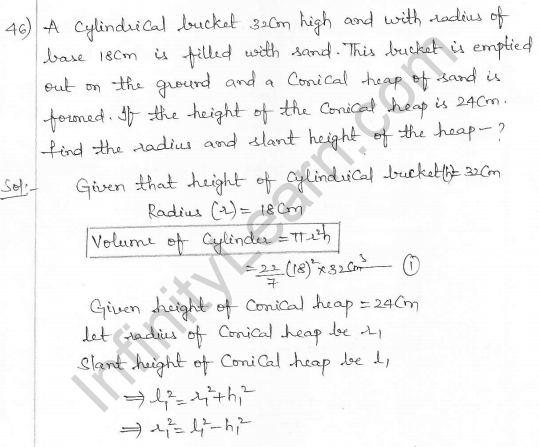 46) A Cylindrical bucket 32cm high and with radius of
base 18cm is filled with sand. This bucket is emptied
out on the ground and a Conical heap of sand is
formed. If the height of the Conical heap is 24cm.
find the radius and slant height of the heap - ?
Sol:- Given that height of Cylindrical bucket(h)= 32cm
Radius (r) = 18cm
Volume of Cylinder = πr²h
= 22/7 (18)² × 32cm³ — ①
Given height of Conical heap = 24cm
let radius of Conical heap be r₁
Slant height of Conical heap be l₁
⇒ l₁² = r₁² + h₁²
⇒ r₁² = l₁² - h₁²
InfinityLearn.com